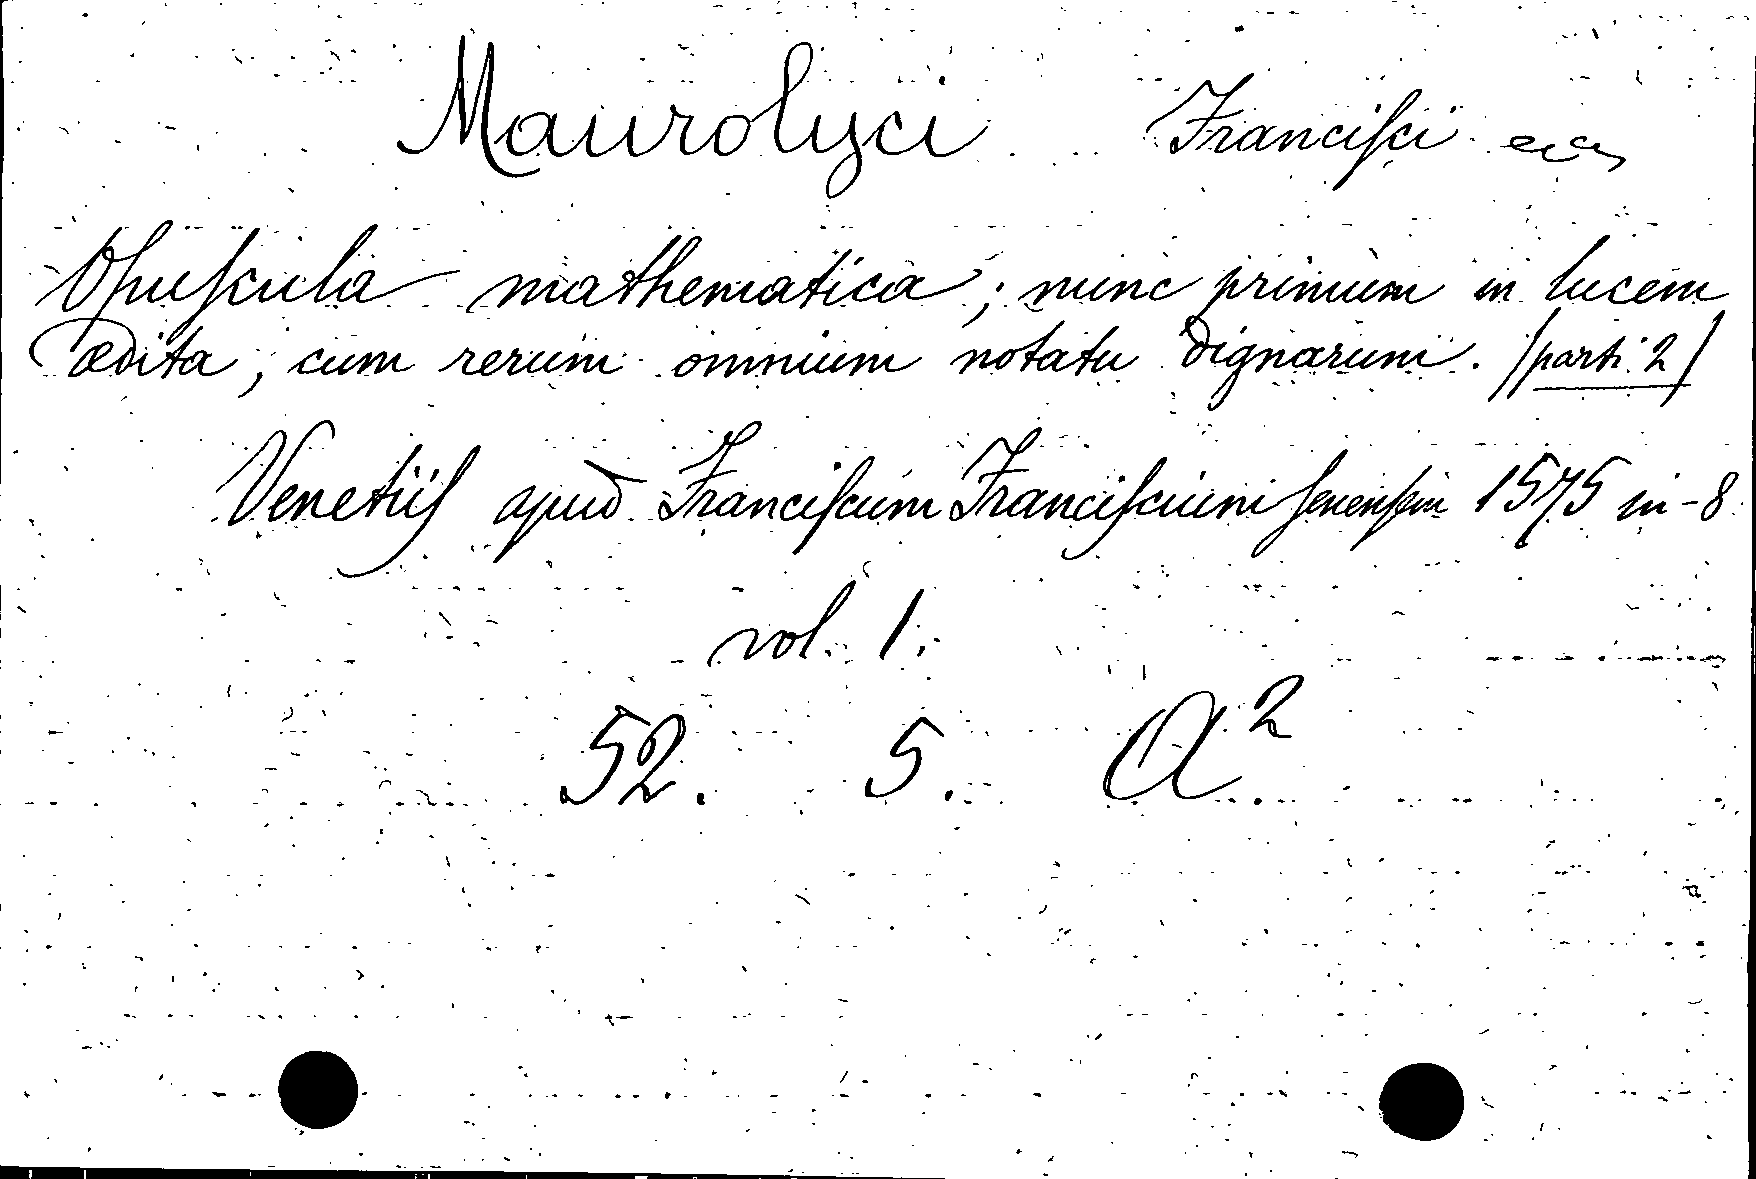 Maurolyci Franciſci
Opuſcula mathematica; nunc primum in lucem
ædita, cum rerum omnium notatu dignarum. (parti 2)
Venetiiſ apud Franciſcum Franciſcium ſenenſem 1575 in-8
vol. 1.
52. 5. A²